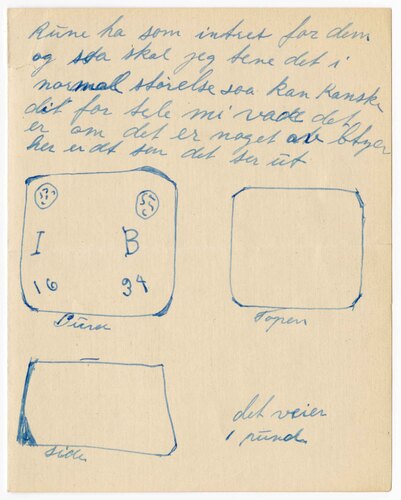 Rune ha som intret for dem
og saa skal jeg tene det i
normal störelse saa kan Kanske
di for tele mi vade det
er om det er noget av btyer
her er dt sen det ser ut
I B
16 34
Bund
Topen
side
det veier
1 pund